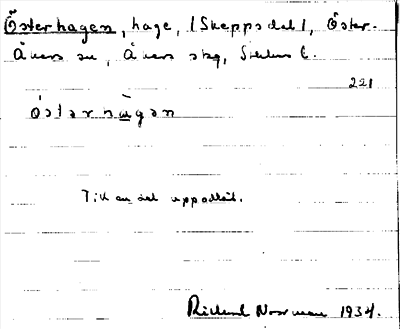 Österhagen, hage, (Skeppsdal), Öster-
Åkers sn, Åkers skg, Sthlms l.
221
östarhagan
Till en del uppodlad.
Rickard Norrman 1934.